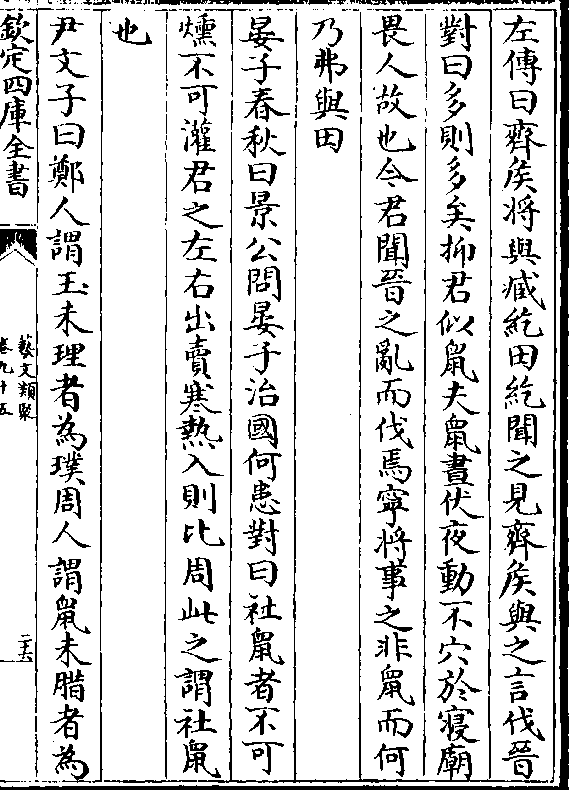 左傳曰齊侯将與臧紇田紇聞之見齊侯與之言伐晉
對曰多則多矣抑君似鼠夫鼠晝伏夜動不穴於寝廟
畏人故也今君聞晉之亂而伐焉寧将事之非鼠而何
乃弗與田
晏子春秋曰景公問晏子治國何患對曰社鼠者不可
燻不可灌君之左右出賣寒熱入則比周此之謂社鼠
也
尹文子曰鄭人謂玉未理者為璞周人謂鼠未腊者為
欽定四庫全書
藝文類聚
卷九十五
二十六